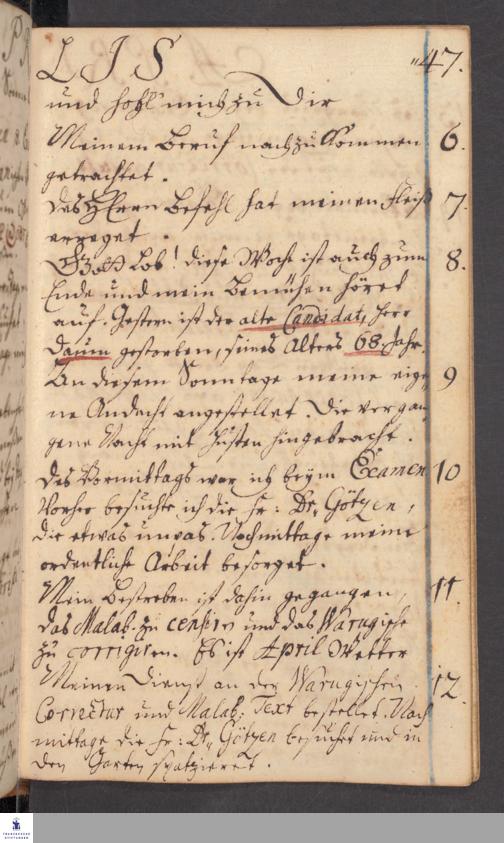 LIS
"47.
und hohl mich zu Dir
Meinem Beruf nachzukommen 6.
getrachtet.
Des HErrn Befehl hat meinen Fleiß 7.
erreget.
GOtt Lob! diese Woche ist auch zum 8.
Ende und mein Bemühen höret
auf. Gestern ist der alte Candidat, Herr
Daum gestorben, seines Alters 68. Jahr.
An diesem Sonntage meine eige 9
ne Andacht angestellet. Die vergan
gene Nacht mit Husten hingebracht.
Des Vormittags war ich beym Examen 10
Vorher besuchte ich die Fr: Dr. Götzen,
die etwas unpas. Nachmittage meine
ordentliche Arbeit besorget.
Mein Bestreben ist dahin gegangen, 11.
das Malab: zu censiren und das Warugische
zu corrigiren. Es ist April Wetter
Meinen Dienst an der Warugischen 12.
Correctur und Malab: Text bestellet. Nach
mittage die Fr: Dr. Götzen besuchet und in
den Garten spatzieret.
FRANCKESCHE
STIFTUNGEN